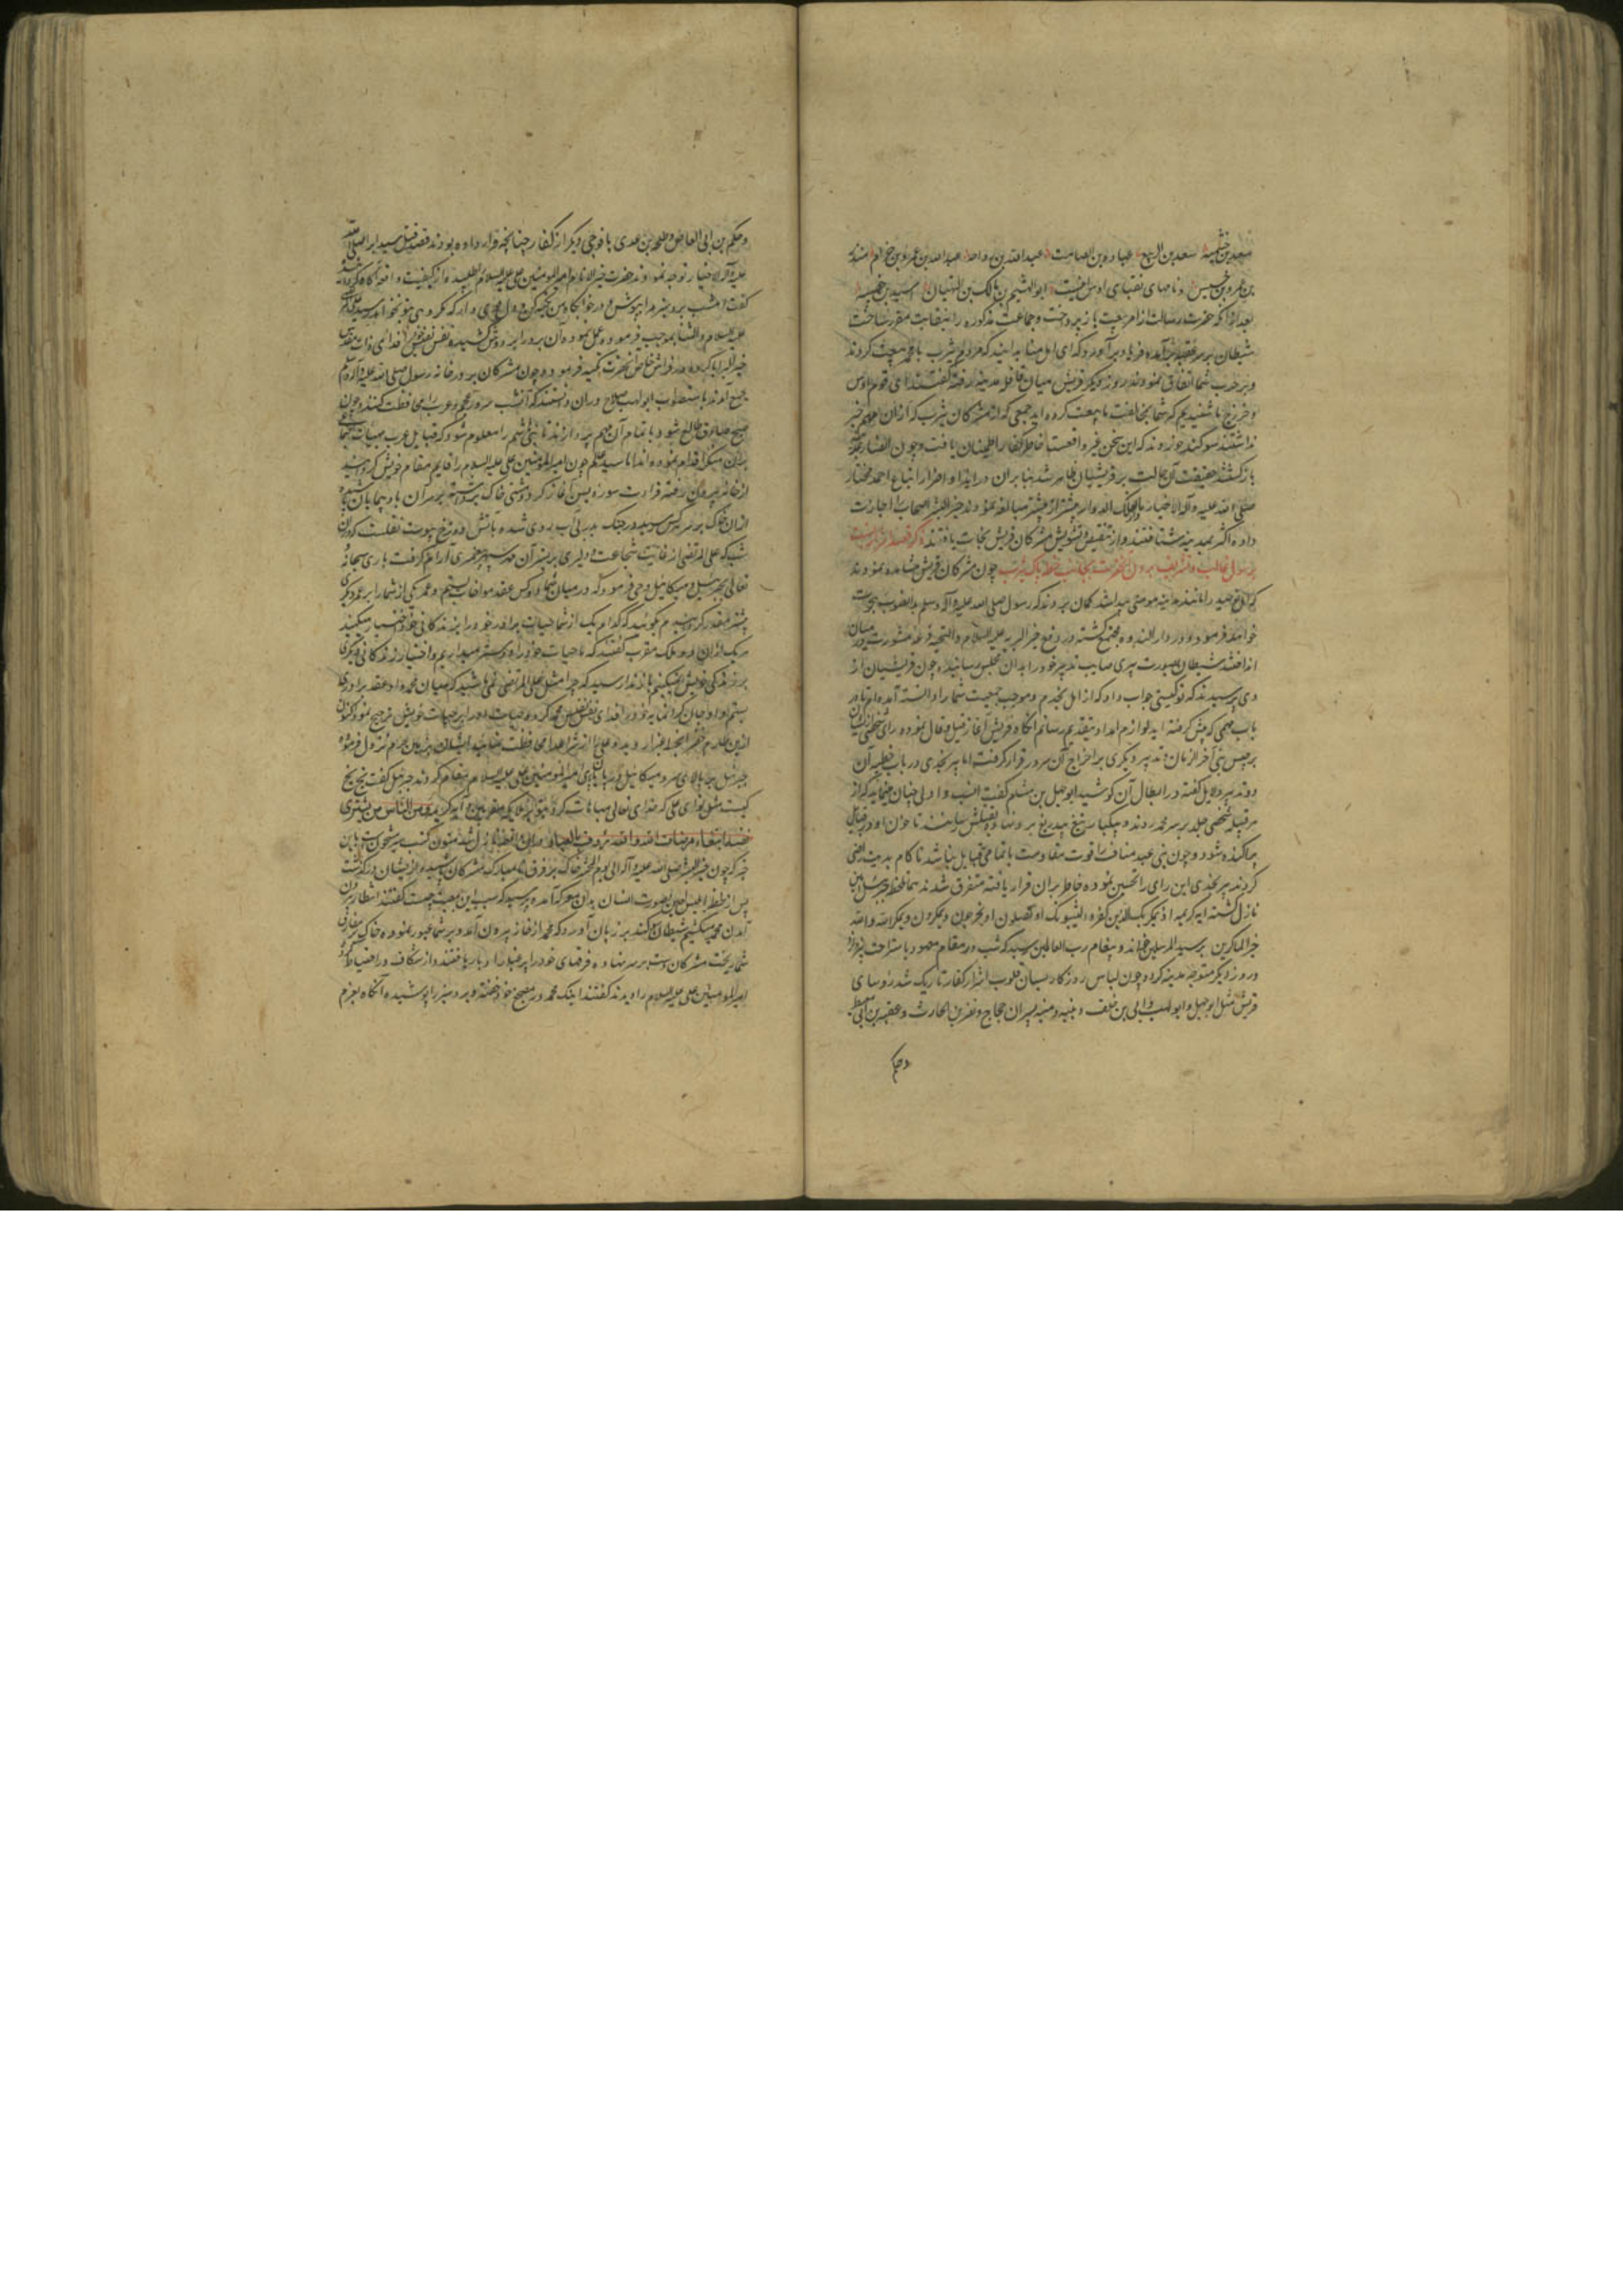 سعد بن خثیمه سعد بن الربیع عباده بن الصامت عبدالله بن رواحه عبدالله بن عمرو بن حرام منذر
بن عمرو بن خنیس و نامهای نقبای اوس اینست ابوالهثیم بن مالک بن التیهان اسید بن
بعد از آنکه حضرت رسالت از امر بیعت باز پرداخت و جماعت مذکوره را بنقابت مقرر ساخت
شیطان بر سر عقبه برآمده فریاد برآورد که ای اهل منا بدانید که مردم یثرب با محمد بیعت کردند
و بر حرب شما اتفاق نمودند روز دیگر قریش میان قافله مدینه رفته گفتند ای قوم اوس
و خزرج ما شنیدیم که شما بمخالفت ما بیعت کرده اید جمعی که از مشرکان یثرب که از آن مهم خبر
نداشتند سوگند خوردند که این سخن غیر واقعست خاطر کفار اطمینان یافت و چون انصار
بازگشتند حقیقت آن حالت بر قریشیان ظاهر شد بنابر آن در ایذا و اضرار اتباع احمد مختار
صلی الله علیه و آله الاخیار بیشتر از پیشتر مبالغه نمودند خیر البشر اصحاب را اجازت
داده اکثر بمدینه شتافتند و از تنقیص و تشویش مشرکان قریش نجات یافتند ذکر قصد
چون مشرکان قریش مشاهده نمودند
که اهل توحید را مانند مدینه مومنی پیدا شد گمان بردند که رسول صلی الله علیه و آله و سلم بدانصوب هجرت
خواهد فرمود و در دار الندوه مجتمع گشته در دفع خیر البریه علیه السلام و التحیه قرعه مشورت در میان
انداختند شیطان بصورت پیری صایب تدبیر خود را بدان مجلس رسانیده چون قریشیان از
وی پرسیدند که تو کیستی جواب داد که از اهل نجدم و موجب جمعیت شما را دانسته آمده ام تا در
باب مهمی که پیش گرفته اید لوازم امداد بتقدیم رسانم آنگاه قریش آغاز قیل و قال نموده رای شخصی
بر حبس نبی آخر الزمان و تدبیر دیگری بر اخراج آن سرور قرار گرفت اما پیر نجدی در باب تخطیه آن
دو تدبیر دلایل گفته در ابطال آن کوشید ابو جهل بن هشام گفت انسب و اولی چنان مینماید که از
هر قبیله شخصی جلد بر سر محمد روند و بیکبار تیغ بیدریغ بر و نهاده بقتلش رسانند تا خون او در قبایل
پراکنده شود و چون بنی عبد مناف را قوت مقاومت با تمامی قبایل نباشد ناکام بدیت راضی
گردند پیر نجدی این رای را تحسین نموده خاطر بر آن قرار یافته متفرق شدند همان لحظه جبرئیل امین
نازل گشته آیه کریمه اذ یمکر بک الذین کفروا لیثبتوک او یقتلوک او یخرجوک و یمکرون و یمکر الله و الله
خیر الماکرین بر سید المرسلین خواند و پیغام رب العالمین رسانید که شب در مقام معهود باستراحت نپردازد
و روز دیگر متوجه مدینه گردد چون لباس روزگار بسان قلوب اشرار کفار تاریک شد روسای
قریش مثل ابو جهل و ابو لهب و ابی بن خلف و نبیه و منبه پسران حجاج و نضر بن الحارث و عقبه بن ابی معیط
و حکم
و حکم بن ابی العاص و طلحه بن عدی با فوجی دیگر از کفار چنانچه قرار داده بودند قصد قتل سید ابرار صلی الله
علیه و آله الاخیار توجه نمودند حضرت خیر الانام امیر المومنین علی علیه السلام را طلبید و از کیفیت واقعه آگاه گردانیده
گفت امشب برد سبز مرا بپوش و در خوابگاه من تکیه کن و دل قوی دار که مکروهی بتو نخواهد رسید علی
علیه السلام و الثنا بموجب فرموده عمل نموده آن برد را بر دوش کشیده نفس نفیس را فدای ذات مقدس
خیر البرایا کرده در فراش خاص آنحضرت تکیه فرموده چون مشرکان بر در خانه رسول صلی الله علیه و آله و سلم
جمع آمدند باستصواب ابو لهب صلاح در آن دانستند که آنشب سرور عجم و عرب را محافظت کنند و چون
صبح صادق طالع شود باتمام آن مهم پردازند تا بنی هاشم را معلوم شود که قبایل عرب بهیات اجتماعی
بر آن منکر اقدام نموده اند اما سید عالم چون امیر المومنین علی علیه السلام را قایم مقام خویش گردانید
از خانه بیرون رفته قراءت سوره یس آغاز کرد و مشتی خاک برداشته بر سر آن بادپیمایان پاشیده
از آن خاک بر سر هر کس رسید در جنگ بدر بی آب روی شده بآتش دوزخ پیوست نقلست که در آن
شب که علی المرتضی از غایت شجاعت و دلیری بر بستر آن مهر سپهر پیغمبری آرام گرفت باری سبحانه
تعالی بجبرئیل و میکائیل وحی فرمود که در میان شما دو کس عقد مواخات بستم و عمر یکی از شما را بر عمر دیگری
بیشتر مقدر گردانیدم بگوئید که کدام یک از شما حیات برادر خود را بر زندگانی خود اختیار میکنید
هر یک از آن دو ملک مقرب گفتند که ما حیات خود را دوستر میداریم و اختیار زندگانی دیگری
بر زندگی خویش نمیکنیم باز ندا رسید که چرا مثل علی المرتضی نمی باشید که میان محمد و او عقد برادری
بستم و او جان گرانمایه خود را فدای نفس نفیس محمد کرده و حیات او را بر حیات خویش ترجیح نمود اکنون
ازین طارم خضرا بخطه غبرا روید و علی را از شر اعدا محافظت نمائید ایشان بفرمان نزول فرموده
جبرئیل ببالای سر و میکائیل در پایان پای امیر المومنین علی علیه السلام مقام کردند جبرئیل گفت بخ بخ
کیست مثل تو ای علی که خدای تعالی مباهات کرد بتو بر ملایکه مقربین و آیه کریمه و من الناس من یشری
نفسه ابتغاء مرضات الله و الله رءوف بالعباد در آن واقعه نازل شد متون کتب سیر مشحونست باین
خبر که چون خیر البشر صلی الله علیه و آله الی یوم المحشر خاک بر فرق نامبارک مشرکان پاشیده از ایشان درگذشت
پس از لحظه ابلیس لعین بصورت انسان بدان معرکه آمده پرسید که سبب این جمعیت چیست گفتند انتظار بیرون
آمدن محمد میکشیم شیطان سوگند بر زبان آورد که محمد از خانه بیرون آمد و بر شما عبور نموده خاک بر مفارق
شما ریخت مشرکان دست بر سر نهاده فرقهای خود را پر غبار ادبار یافتند و از شکاف در احتیاط کرده
امیر المومنین علی علیه السلام را دیدند گفتند اینک محمد در مضجع خود خفته و برد سبز را پوشیده آنگاه بعزم